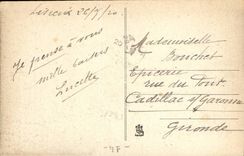 Lisieux 26/7/20
Je pense à vous
mille baisers
Lucette
Mademoiselle
Bouchet
Epicerie
rue du Pont
Cadillac s/ Garonne
Gironde